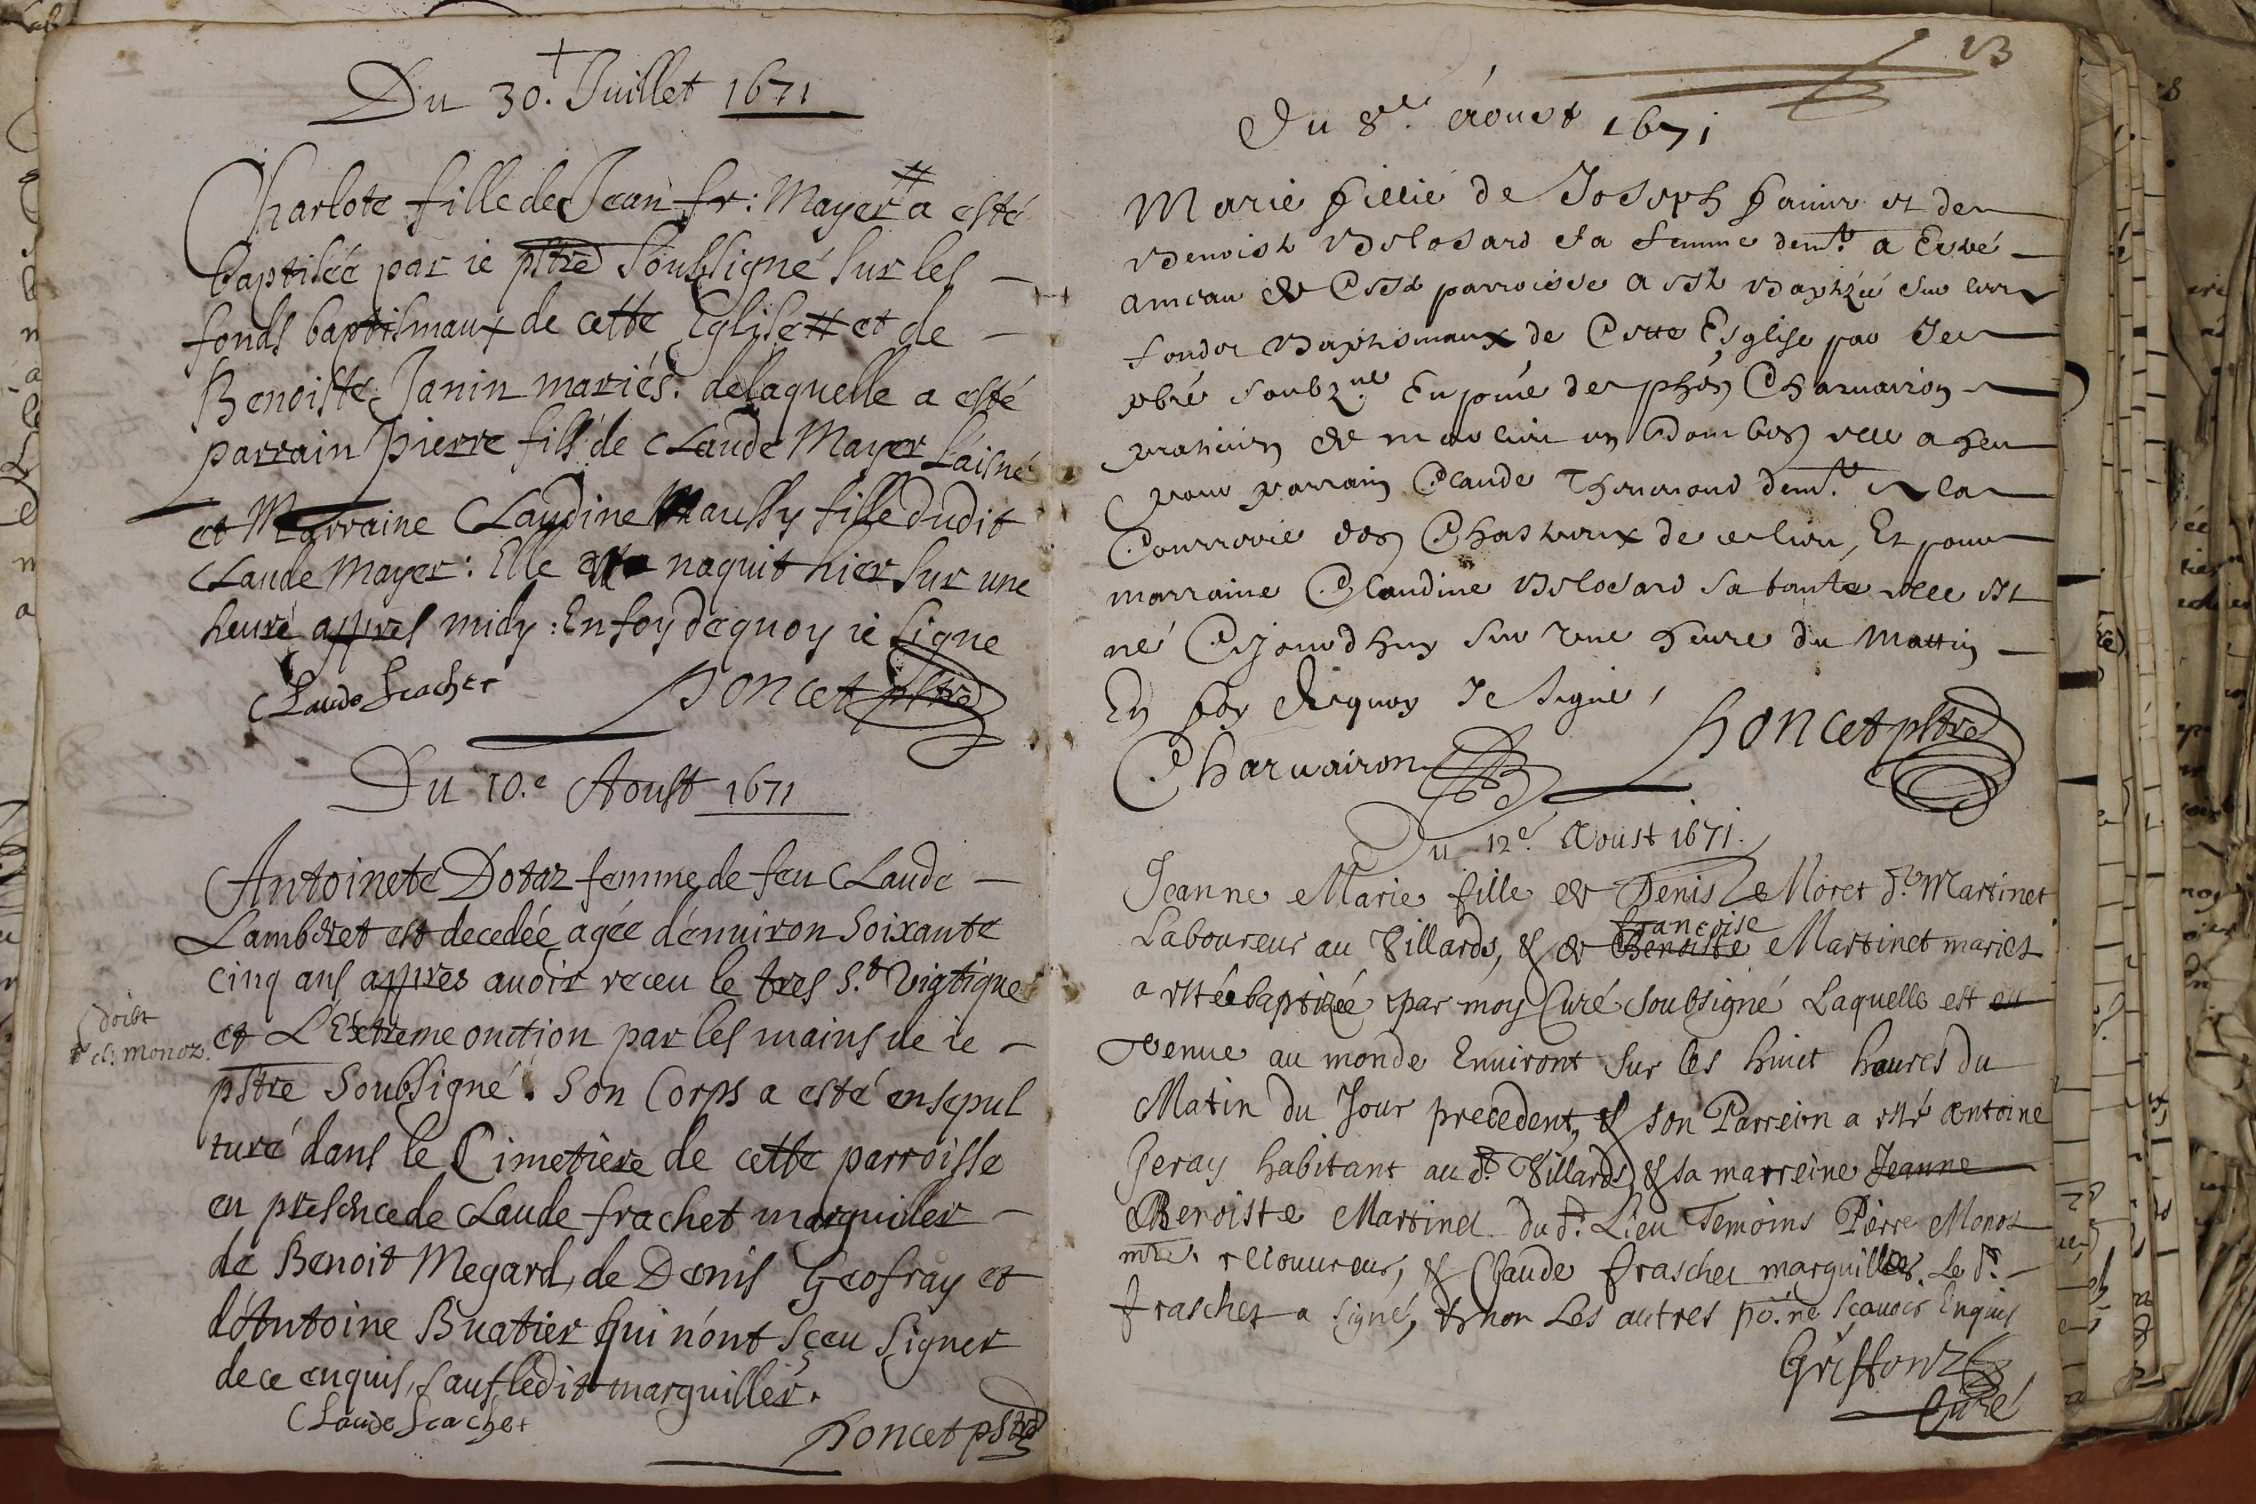 Du 30. Juillet 1671
Charlote fille de Jean fr: Mayer # a esté
baptisée par ie pstre soubsigné sur les
fonds baptismaux de cette Eglise # et de
Benoiste Janin mariés. de laquelle a esté
parrain pierre fils de Claude Mayer l'aisné
et Marraine Claudine Maussy fille dudit
Claude Mayer: Elle naquit hier sur une
heure appres midy: En foy de quoy ie signe
Claude frachet Poncet pstre
Du 10.e Aoust 1671
Antoinete Dotaz femme de feu Claude
Lamberet est decedée agée d'enuiron soixante
cinq ans appres auoir receu le tres S.t Viatique
et L'Extreme onction par les mains de ie
doibt
cl: monoz.
pstre soubsigné. Son Corps a esté ensepul
turé dans le Cimetiere de cette parroisse
en presence de Claude frachet marguiller
de Benoit Megard, de Denis Geofray et
d'Antoine Buatier qui n'ont sceu signer
de ce enquis, sauf ledit marguiller.
Claude frachet
Poncet pstre
23
Du 8e. Aoust 1671
Marie fillie de Joseph et de
Benoist Belosard sa femme demt. a
ameau de Cest parroisse a est Baptizé sur les
fondz Baptismaux de Cette Esglise par Je
pbre soubzne. En pnce de phes Charuairon
praticien de en Dombes elle a heu
pour parrain Claude demt. a la
Courrerie des Chasteaux de ce lieu, Et pour
marraine Claudine Belosard sa tante elle est
né Ce jourdhuy sur une heure du Mattin
En foy de quoy Je signe,
Charuairon Poncet pstre
Du 12e. Aoust 1671.
Jeanne Marie fille de Denis Moret dt. Martinet
Laboureur au Villards, & de Benoiste françoise Martinet mariez
a esté baptizée par moy Curé soubsigné Laquelle est
venue au monde Enuiront sur les huict heures du
Matin du Jour precedent, & son Parrein a esté Antoine
Geray habitant au dt. Villards, & sa marreine Jeanne
Benoiste Martinet du dt. Lieu Temoins Pierre Monoz
mtre. recouureur, & Claude fraschet marguiller. Le dt.
fraschet a signé, & non Les autres po. ne scauoir Enquis
Griffonz
Curé